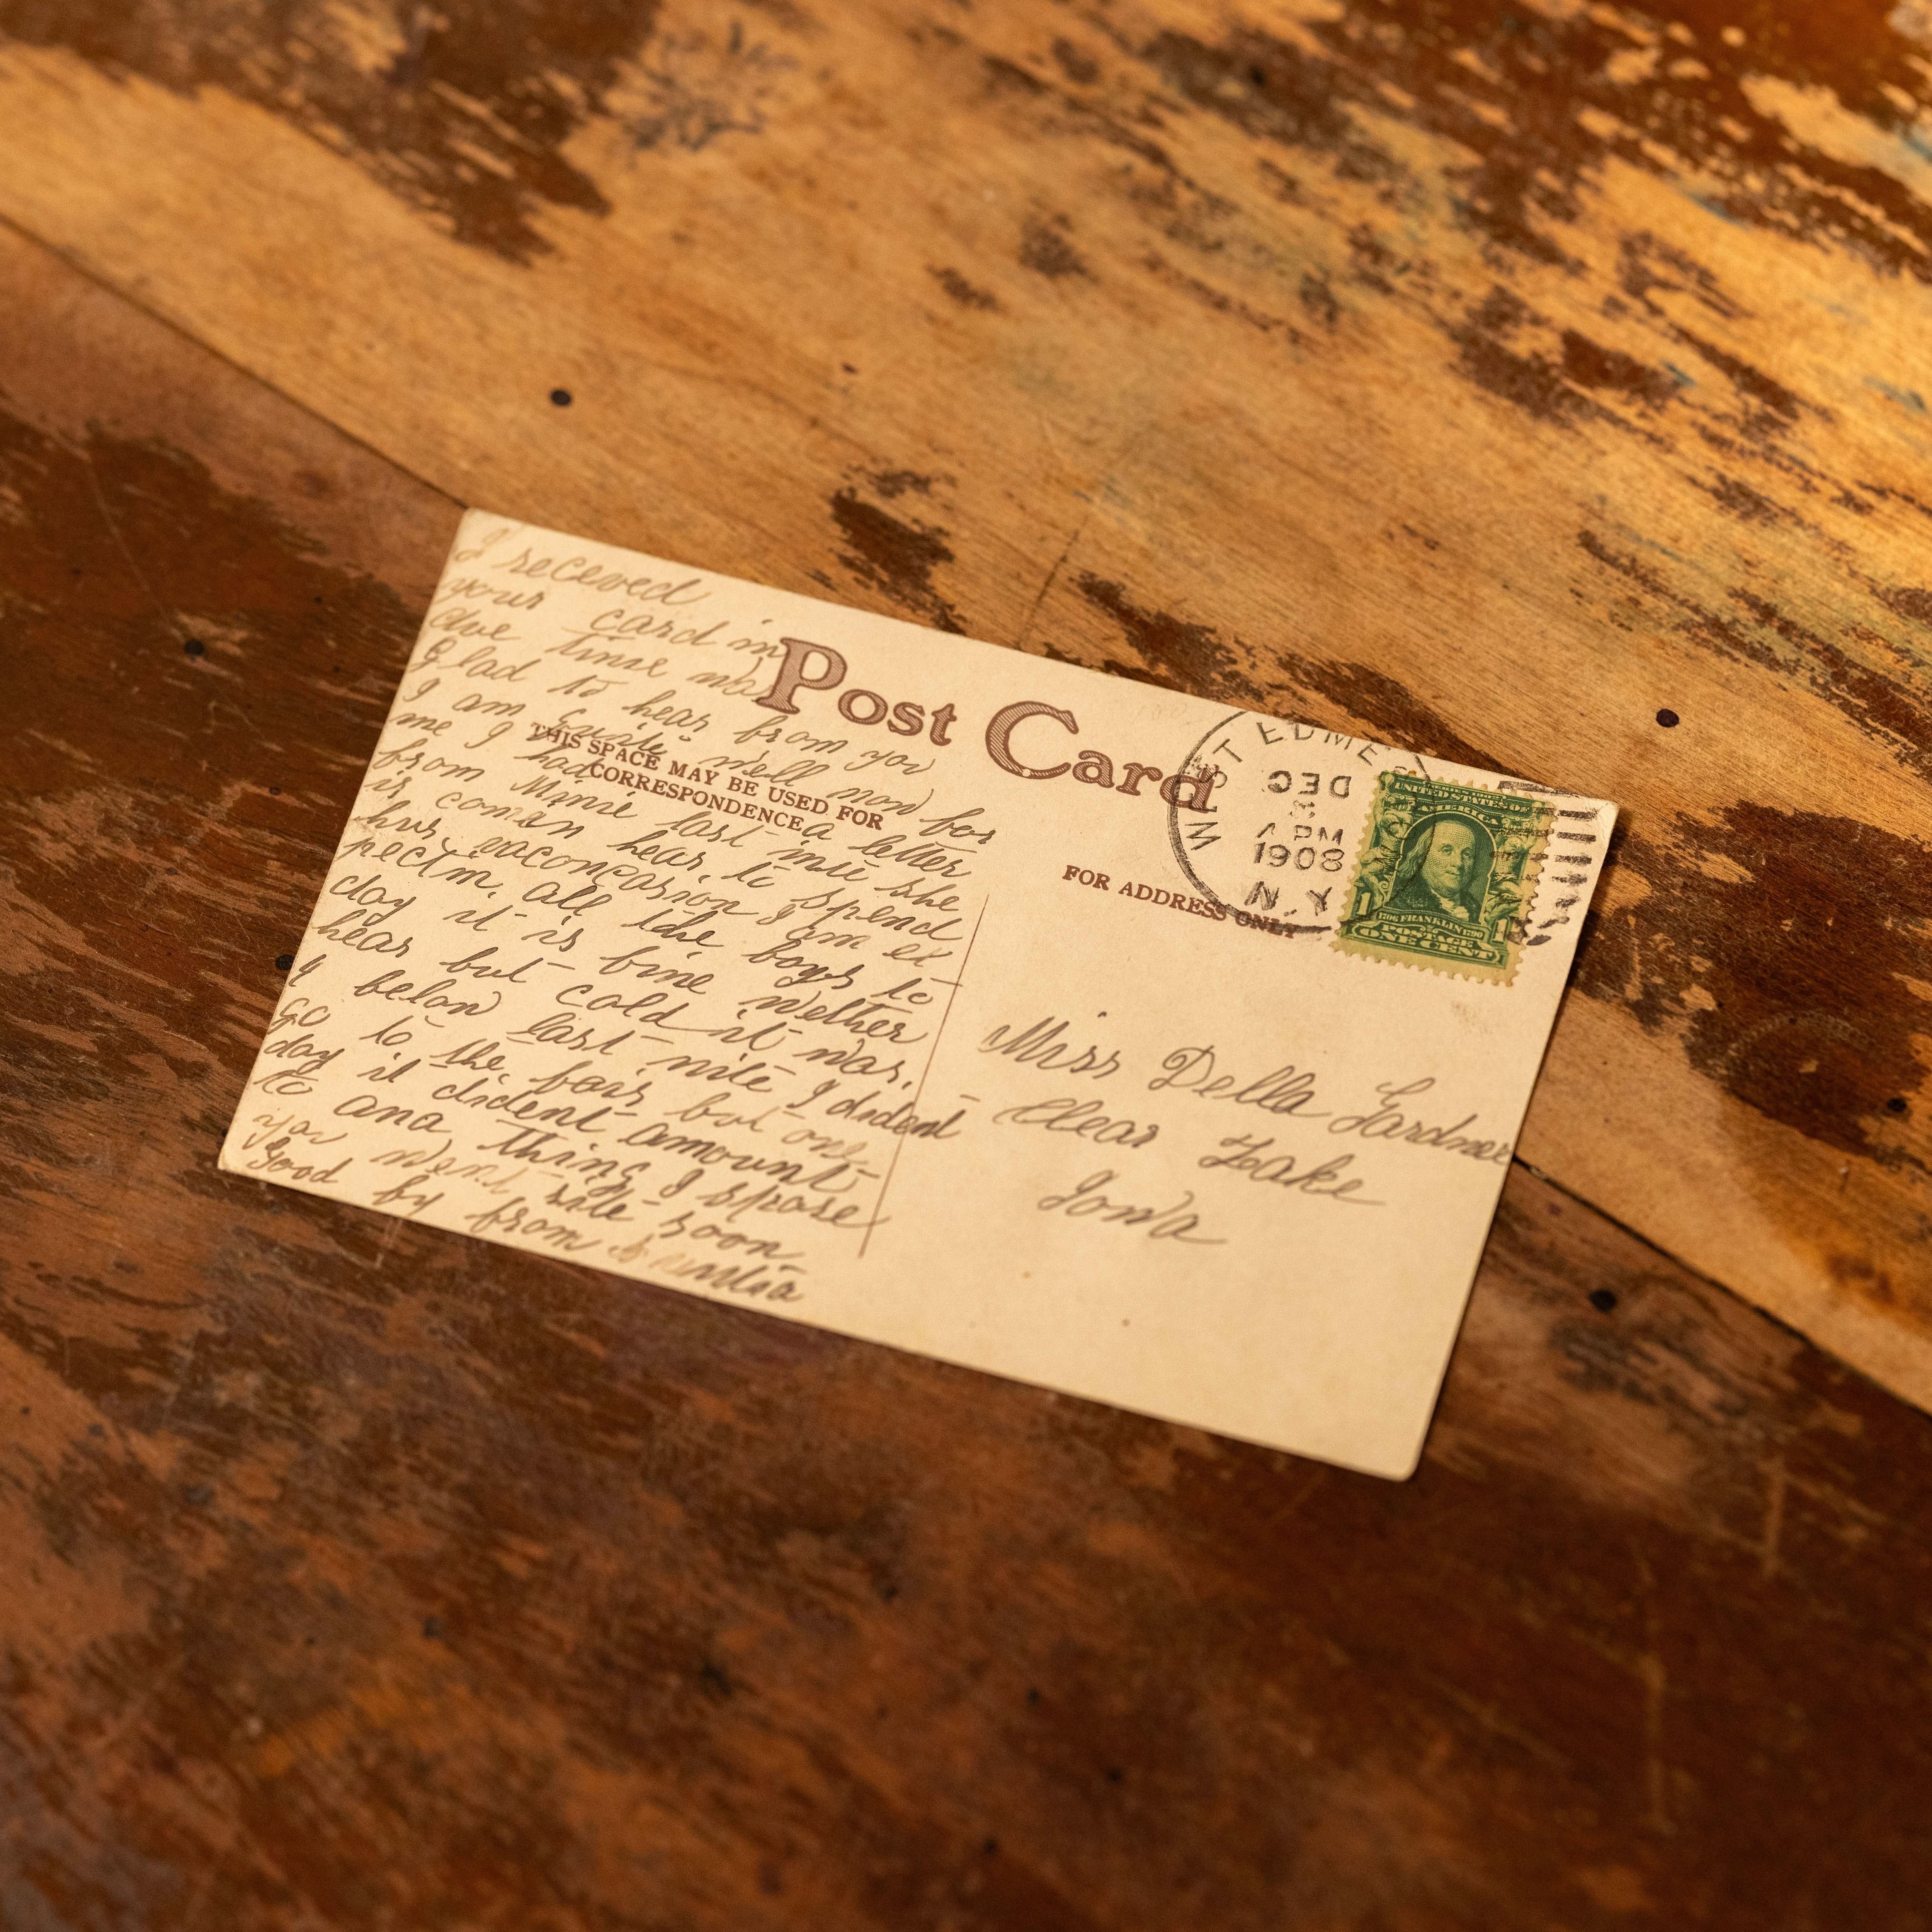 I receved
your card in
due time was
Glad to hear from you
I am quite well now for
me I had a letter
from Minie last nite she
is coman hear to spend
hur vaconsasion I am ex
pectin all the boys to
day it is fine wether
hear but cold it was
4 below last nite I dident
go to the fair but one
day it dident amount
to ana thing I spose
you went rite soon
Good by from
Post Card
THIS SPACE MAY BE USED FOR
CORRESPONDENCE
FOR ADDRESS ONLY
WEST EDME
DEC
3
PM
1908
N.Y.
UNITED STATES OF
AMERICA
1706 FRANKLIN 1790
1 POSTAGE 1
ONE CENT
Miss Della Gardner
Clear Lake
Iowa